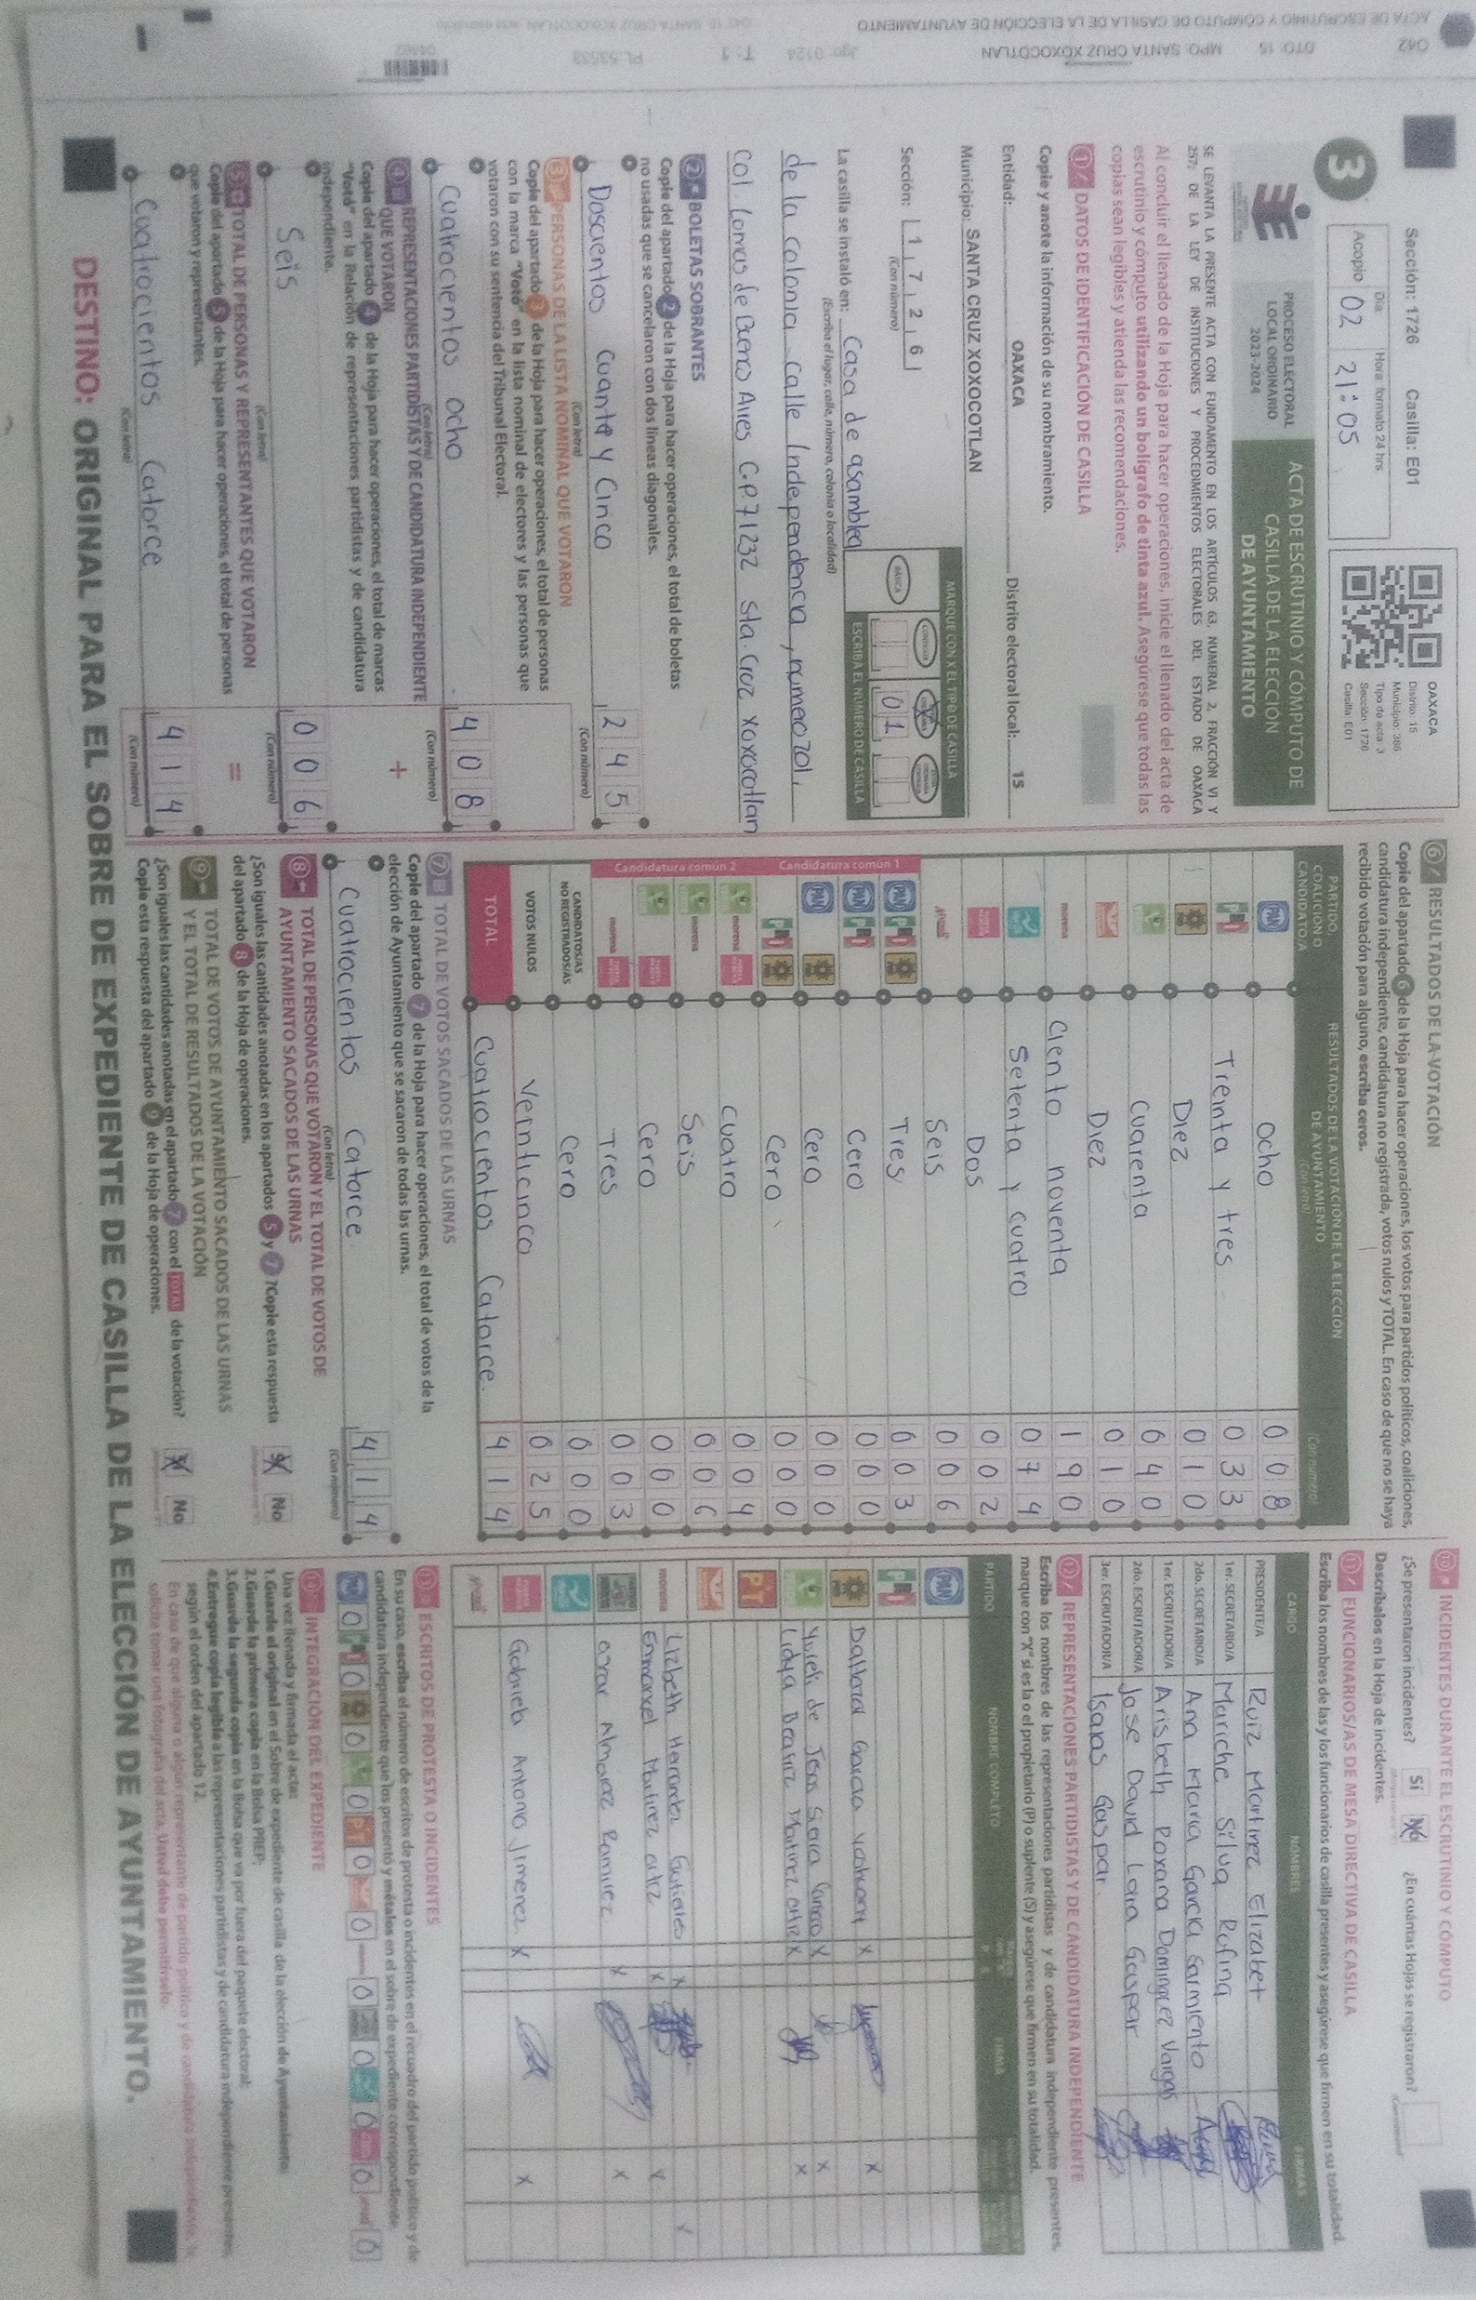 Sección: 1726 Casilla: E01
OAXACA
Distrito: 15
Municipio: 386
Tipo de acta: 3
Sección: 1726
Casilla: E01
3
Día
Hora: formato 24 hrs
Acopio 02 21:05
PROCESO ELECTORAL
LOCAL ORDINARIO
2023-2024
ACTA DE ESCRUTINIO Y CÓMPUTO DE
CASILLA DE LA ELECCIÓN
DE AYUNTAMIENTO
SE LEVANTA LA PRESENTE ACTA CON FUNDAMENTO EN LOS ARTÍCULOS 63, NUMERAL 2, FRACCIÓN VI Y
257; DE LA LEY DE INSTITUCIONES Y PROCEDIMIENTOS ELECTORALES DEL ESTADO DE OAXACA
Al concluir el llenado de la Hoja para hacer operaciones, inicie el llenado del acta de
escrutinio y cómputo utilizando un bolígrafo de tinta azul. Asegúrese que todas las
copias sean legibles y atienda las recomendaciones.
1 DATOS DE IDENTIFICACIÓN DE CASILLA
Copie y anote la información de su nombramiento.
Entidad: OAXACA Distrito electoral local: 15
Municipio: SANTA CRUZ XOXOCOTLAN
MARQUE CON X EL TIPO DE CASILLA
Sección: 1 7 2 6
(Con número)
BÁSICA
ESCRIBA EL NÚMERO DE CASILLA
01
La casilla se instaló en: Casa de asamblea
(Escriba el lugar, calle, número, colonia o localidad)
de la colonia calle Independencia, número 201,
Col. Lomas de Buenos Aires C.P. 71232 Sta. Cruz Xoxocotlan
2 BOLETAS SOBRANTES
Copie del apartado 2 de la Hoja para hacer operaciones, el total de boletas
no usadas que se cancelaron con dos líneas diagonales.
Doscientos Cuarenta y Cinco 2 4 5
(Con letra) (Con número)
3 PERSONAS DE LA LISTA NOMINAL QUE VOTARON
Copie del apartado 3 de la Hoja para hacer operaciones, el total de personas
con la marca "Votó" en la lista nominal de electores y las personas que
votaron con su sentencia del Tribunal Electoral.
Cuatrocientos ocho 4 0 8
(Con letra) (Con número)
4 REPRESENTACIONES PARTIDISTAS Y DE CANDIDATURA INDEPENDIENTE
QUE VOTARON
+
Copie del apartado 4 de la Hoja para hacer operaciones, el total de marcas
"Votó" en la Relación de representaciones partidistas y de candidatura
independiente.
Seis 0 0 6
(Con letra) (Con número)
5 TOTAL DE PERSONAS Y REPRESENTANTES QUE VOTARON
=
Copie del apartado 5 de la Hoja para hacer operaciones, el total de personas
que votaron y representantes.
Cuatrocientos Catorce 4 1 4
(Con letra) (Con número)
6 RESULTADOS DE LA VOTACIÓN
Copie del apartado 6 de la Hoja para hacer operaciones, los votos para partidos políticos, coaliciones,
candidatura independiente, candidatura no registrada, votos nulos y TOTAL. En caso de que no se haya
recibido votación para alguno, escriba ceros.
PARTIDO,
COALICIÓN O
CANDIDATO/A
RESULTADOS DE LA VOTACIÓN DE LA ELECCIÓN
DE AYUNTAMIENTO
(Con letra) (Con número)
PAN Ocho 0 0 8
PRI Treinta y tres 0 3 3
Diez 0 1 0
Cuarenta 0 4 0
Diez 0 1 0
morena Ciento noventa 1 9 0
Setenta y cuatro 0 7 4
Dos 0 0 2
Seis 0 0 6
Candidatura común 1
PAN PRI Tres 0 0 3
PAN PRI Cero 0 0 0
PAN Cero 0 0 0
PRI Cero 0 0 0
Candidatura común 2
morena Cuatro 0 0 4
morena Seis 0 0 6
Cero 0 0 0
morena Tres 0 0 3
CANDIDATOS/AS
NO REGISTRADOS/AS
Cero 0 0 0
VOTOS NULOS Venticinco 0 2 5
TOTAL Cuatrocientos Catorce. 4 1 4
7 TOTAL DE VOTOS SACADOS DE LAS URNAS
Copie del apartado 7 de la Hoja para hacer operaciones, el total de votos de la
elección de Ayuntamiento que se sacaron de todas las urnas.
Cuatrocientos Catorce 4 1 4
(Con letra) (Con número)
8 TOTAL DE PERSONAS QUE VOTARON Y EL TOTAL DE VOTOS DE
AYUNTAMIENTO SACADOS DE LAS URNAS
¿Son iguales las cantidades anotadas en los apartados 5 y 7 ?Copie esta respuesta
del apartado 8 de la Hoja de operaciones.
Sí No
9 TOTAL DE VOTOS DE AYUNTAMIENTO SACADOS DE LAS URNAS
Y EL TOTAL DE RESULTADOS DE LA VOTACIÓN
¿Son iguales las cantidades anotadas en el apartado 7 con el TOTAL de la votación?
Copie esta respuesta del apartado 9 de la Hoja de operaciones.
Sí No
10 INCIDENTES DURANTE EL ESCRUTINIO Y CÓMPUTO
¿Se presentaron incidentes? Sí No ¿En cuántas Hojas se registraron?
Descríbalos en la Hoja de incidentes.
11 FUNCIONARIOS/AS DE MESA DIRECTIVA DE CASILLA
Escriba los nombres de las y los funcionarios de casilla presentes y asegúrese que firmen en su totalidad.
CARGO NOMBRES FIRMAS
PRESIDENTE/A Ruiz Martinez Elizabet
1er. SECRETARIO/A Mariche Silva Rufina
2do. SECRETARIO/A Ana Maria Garcia Sarmiento
1er. ESCRUTADOR/A Arisbeth Roxana Dominguez Vargas
2do. ESCRUTADOR/A Jose David Lara Gaspar
3er. ESCRUTADOR/A Isaias Gaspar
12 REPRESENTACIONES PARTIDISTAS Y DE CANDIDATURA INDEPENDIENTE
Escriba los nombres de las representaciones partidistas y de candidatura independiente presentes,
marque con "X" si es la o el propietario (P) o suplente (S) y asegúrese que firmen en su totalidad.
PARTIDO NOMBRE COMPLETO FIRMA
PAN
PRI
Garcia X X
X X
Lidya Beatriz Martinez Ortiz X X
PT
morena Lizbeth Hernandez Gutierrez X
Emmanuel Martinez Ortiz X X
Oscar Almaraz Ramirez X X
Gabriela Antonio Jimenez X X
13 ESCRITOS DE PROTESTA O INCIDENTES
En su caso, escriba el número de escritos de protesta o incidentes en el recuadro del partido político y de
candidatura independiente que los presentó y métalos en el sobre de expediente correspondiente.
PAN 0 PRI 0 0 0 PT 0 0 0 0 0 0 0
14 INTEGRACIÓN DEL EXPEDIENTE
Una vez llenada y firmada el acta:
1. Guarde el original en el Sobre de expediente de casilla de la elección de Ayuntamiento;
2. Guarde la primera copia en la Bolsa PREP;
3. Guarde la segunda copia en la Bolsa que va por fuera del paquete electoral;
4. Entregue copia legible a las representaciones partidistas y de candidatura independiente presentes,
según el orden del apartado 12.
En caso de que alguna o algún representante de partido político y de candidatura independiente, le
solicite tomar una fotografía del acta, Usted debe permitírselo.
DESTINO: ORIGINAL PARA EL SOBRE DE EXPEDIENTE DE CASILLA DE LA ELECCIÓN DE AYUNTAMIENTO.
042 DTO: 15 MPO: SANTA CRUZ XOXOCOTLAN
ACTA DE ESCRUTINIO Y CÓMPUTO DE CASILLA DE LA ELECCIÓN DE AYUNTAMIENTO